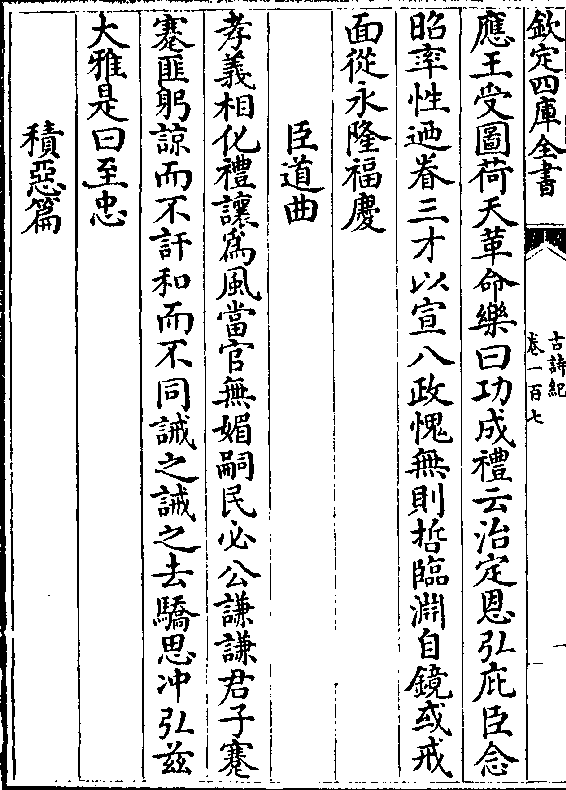 欽定四庫全書
古詩紀
卷一百七
應王受圖荷天革命樂曰功成禮云治定恩弘庇臣念
昭率性迺眷三才以宣八政愧無則哲臨淵自鏡或戒
面從永隆福慶
臣道曲
孝義相化禮讓為風當官無媚嗣民必公謙謙君子蹇
蹇匪躬諒而不訐和而不同誡之誡之去驕思冲弘兹
大雅是曰至忠
積惡篇